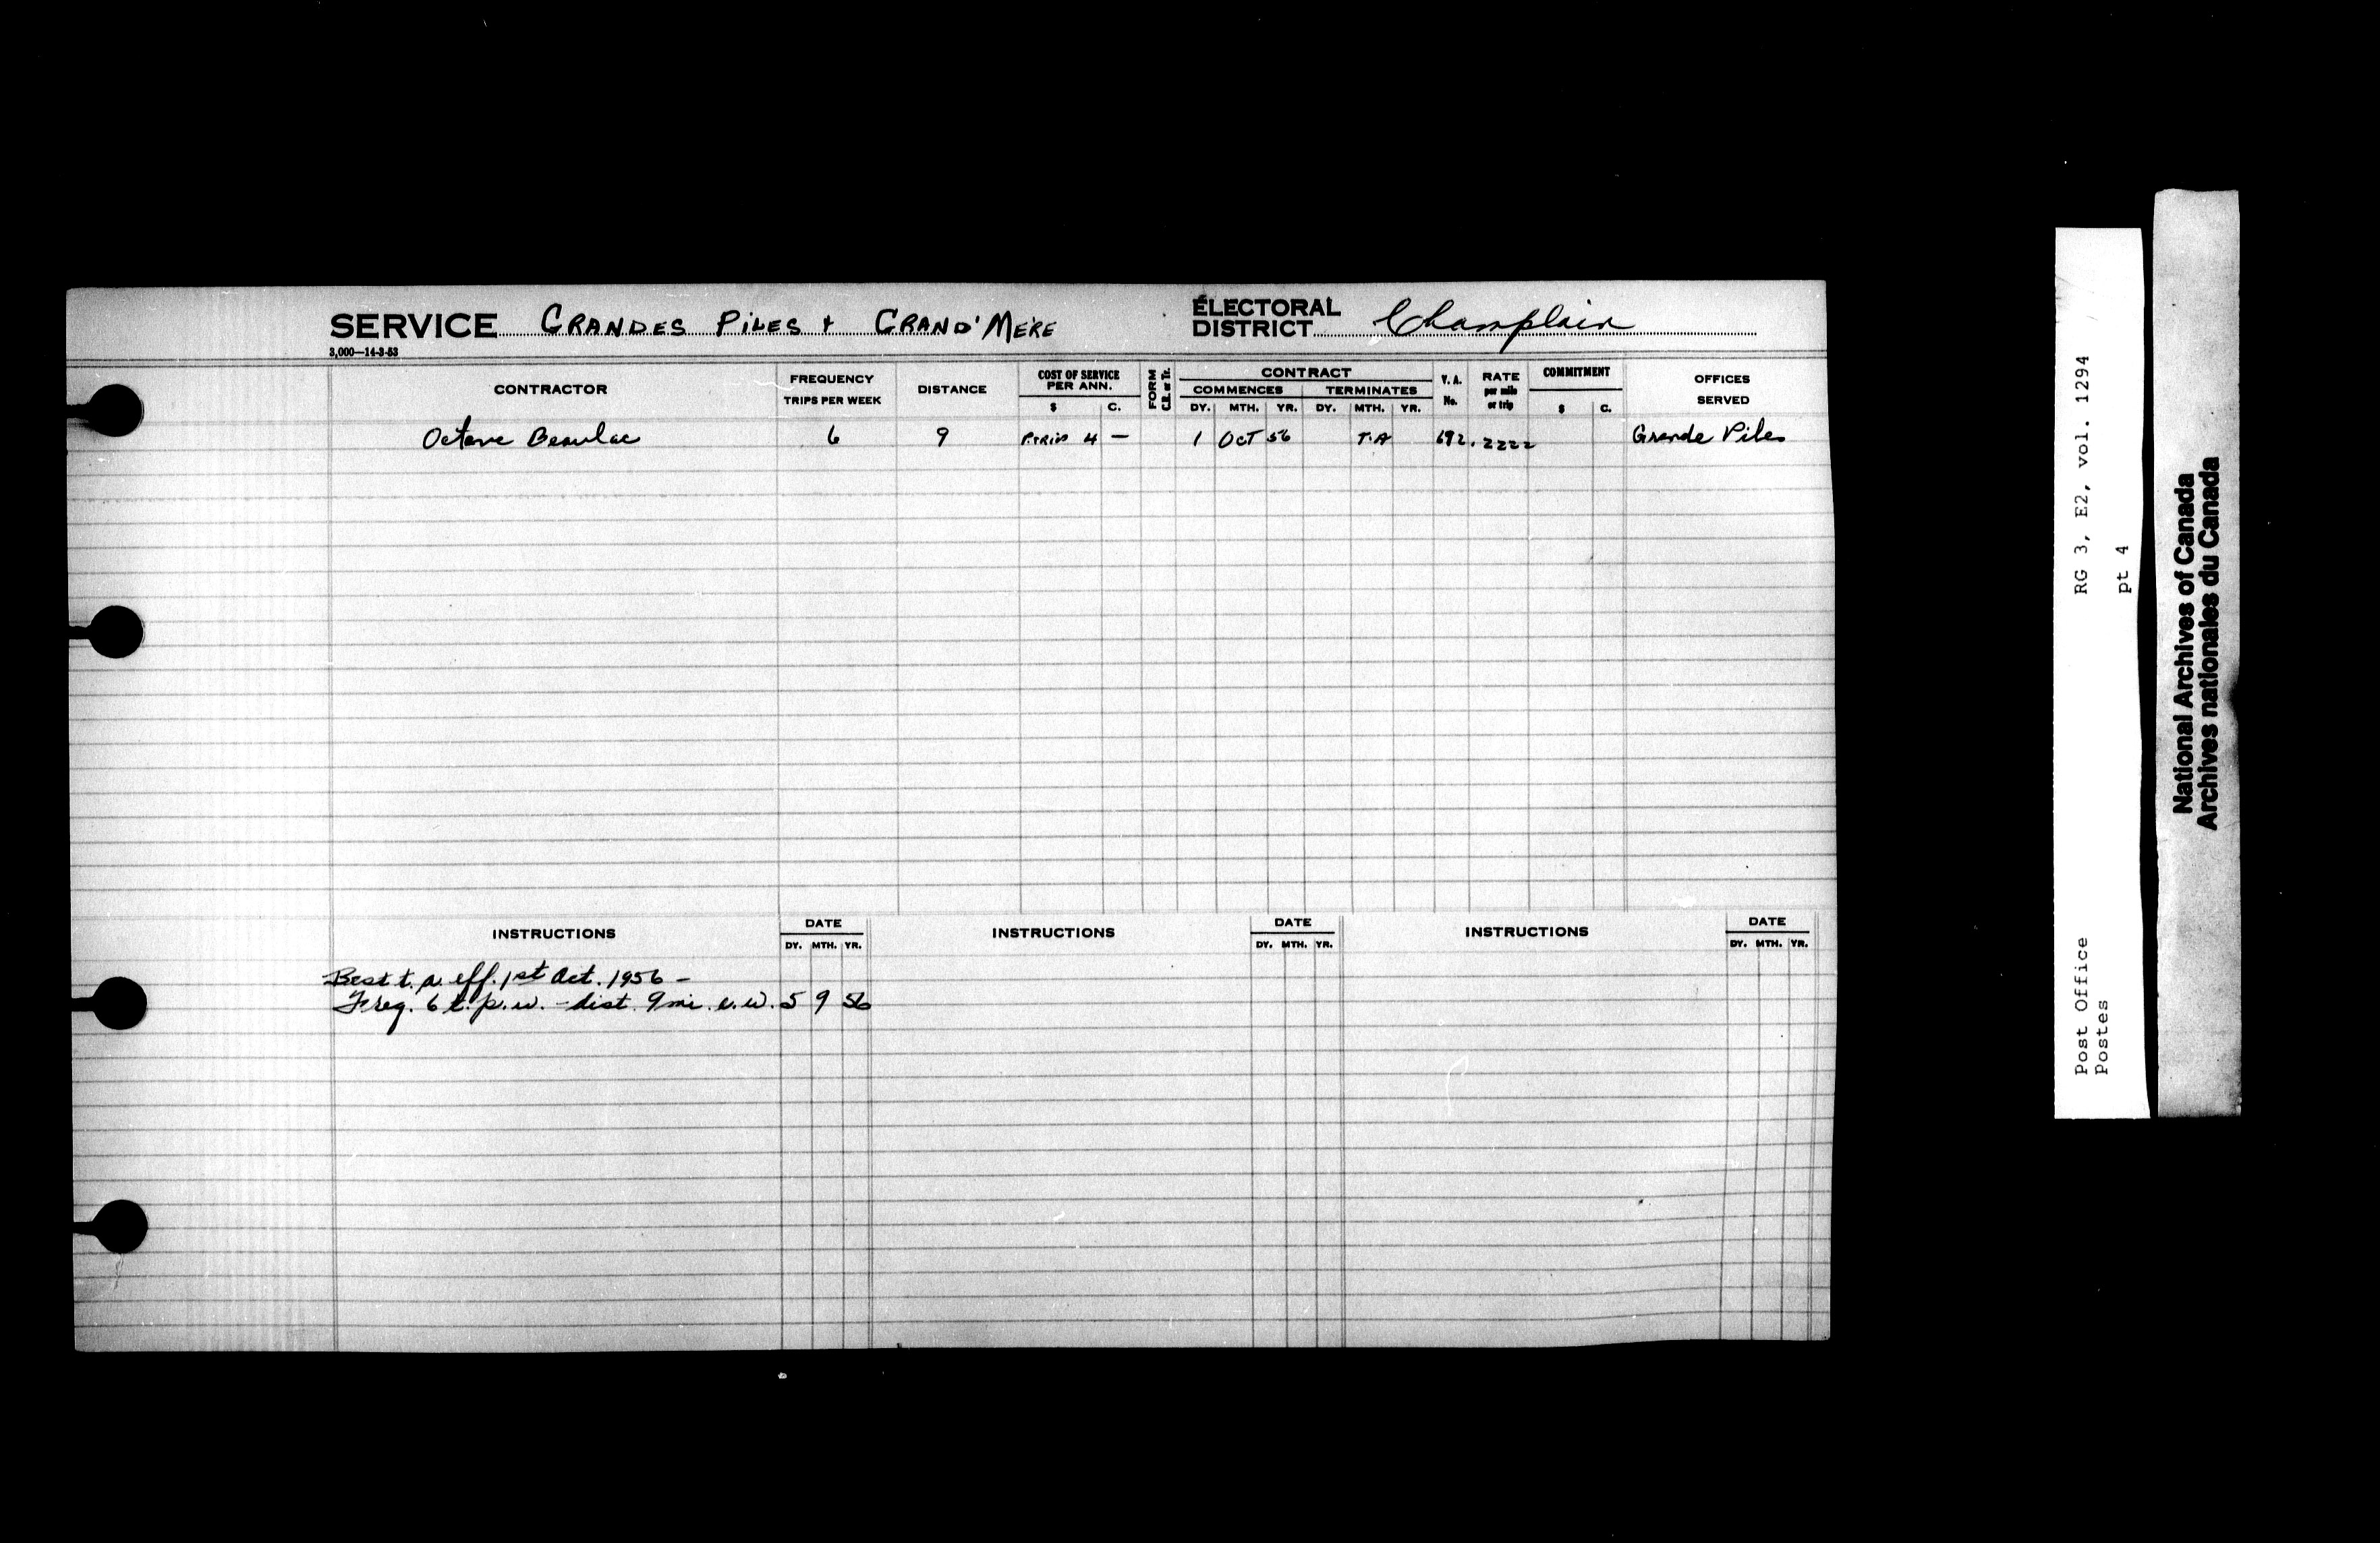 SERVICE GRANDES PILES & GRAND'MERE ÉLECTORAL DISTRICT Champlain
3,000—14-3-53
CONTRACTOR FREQUENCY TRIPS PER WEEK DISTANCE COST OF SERVICE PER ANN. $ C. FORM C.B. or Tr. CONTRACT COMMENCES DY. MTH. YR. TERMINATES DY. MTH. YR. V. A. No. RATE per mile or trip COMMITMENT $ C. OFFICES SERVED
Octave Beaulac 6 9 P.TRIP 4 — 1 OCT 56 T.A 692 .2222 Grande Piles
INSTRUCTIONS DATE DY. MTH. YR. INSTRUCTIONS DATE DY. MTH. YR. INSTRUCTIONS DATE DY. MTH. YR.
Best t. a. eff. 1st Oct. 1956 –
Freq. 6 t. p. w. – dist. 9 mi. e. w. 5 9 56
RG 3, E2, vol. 1294
pt 4
Post Office
Postes
National Archives of Canada
Archives nationales du Canada